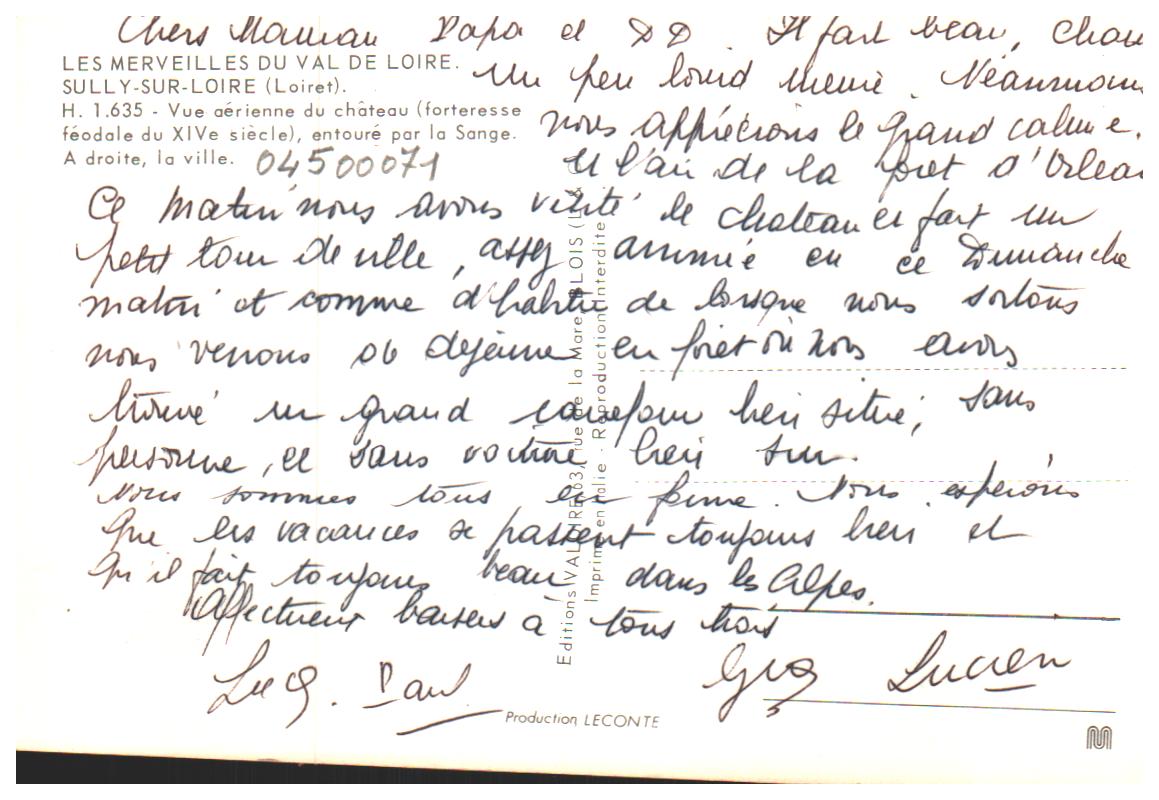 Chers Maman Papa et DD. Il fait beau, chau
LES MERVEILLES DU VAL DE LOIRE.
un peu lourd même. Néanmoins
SULLY-SUR-LOIRE (Loiret).
H. 1.635 - Vue aérienne du château (forteresse
féodale du XIVe siècle), entouré par la Sange.
nous apprécions le grand calme.
A droite, la ville. 04500071
et l'air de la forêt d'Orléa
Ce matin nous avons visité le chateau et fait un
petit tour de ville, assez animée en ce Dimanche
matin et comme d'habitude lorsque nous sortons
nous venons déjeuner en forêt où nous avons
trouvé un grand carrefour bien situé, sans
personne, et sans voiture bien sur.
Nous sommes tous en forme. Nous espérons
que les vacances se passent toujours bien et
qu'il fait toujours beau dans les Alpes.
Affectueux baisers à tous trois
Paul Lucien
Editions VALOIRE 03, rue de la Mare BLOIS (L. & C
Imprimé en Italie - Reproduction interdite
Production LECONTE